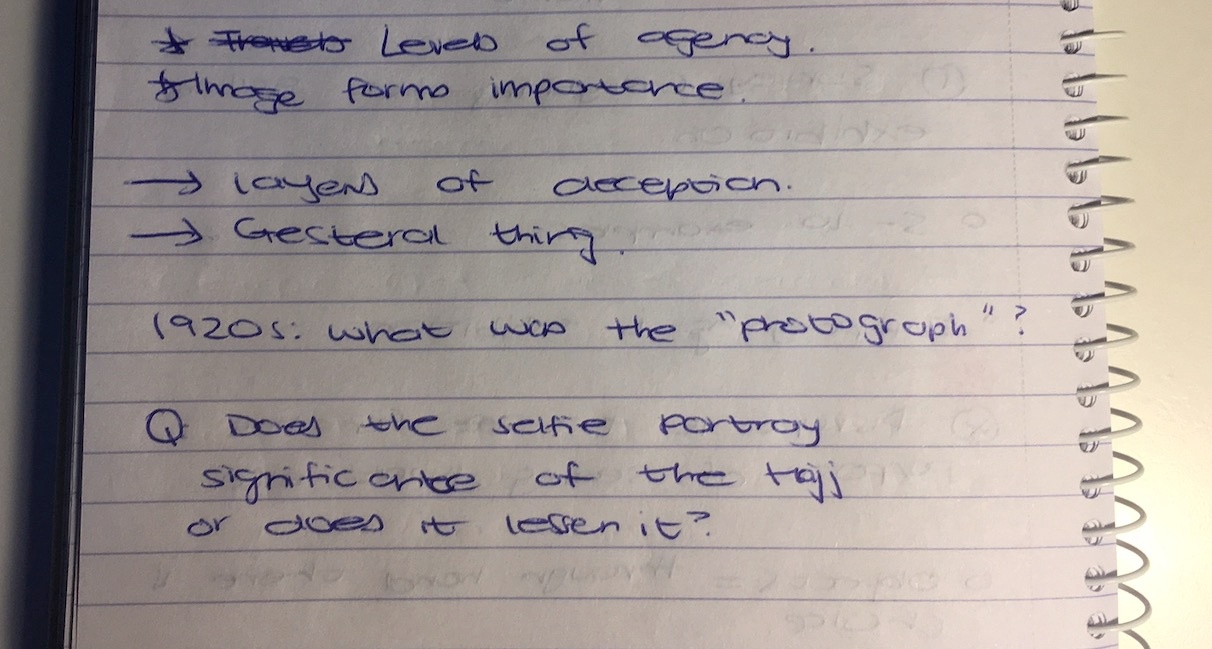 * Levels of agency.
* Image forms importance.
→ layers of deception.
→ Gesteral thing.
1920s: what was the "photograph"?
Q Does the selfie portray
significance of the Hajj
or does it lessen it?